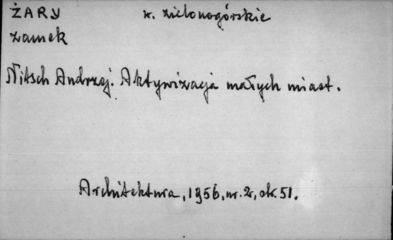 ŻARY w. zielonogórskie
zamek
Nitsch Andrzej. Aktywizacja małych miast.
Architektura, 1956, nr. 2, ok. 51.